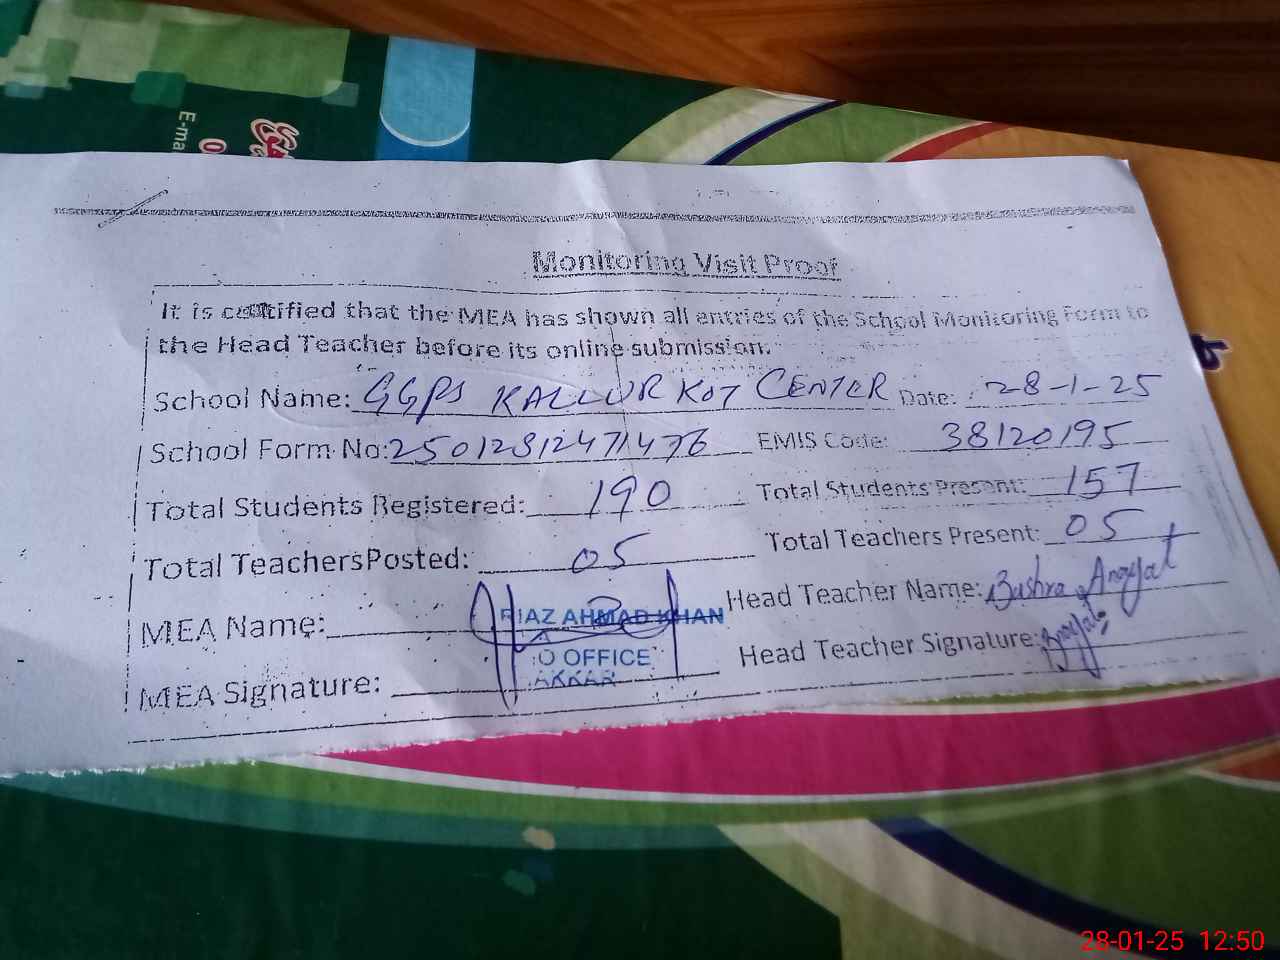 E-ma
Monitoring Visit Proof
It is certified that the MEA has shown all entries of the School Monitoring Form to
the Head Teacher before its online submission.
School Name: GGPS KALLUR KOT CENTER Date: 28-1-25
School Form No: 25012812471476 EMIS Code: 38120195
Total Students Registered: 190 Total Students Present: 157
Total TeachersPosted: 05 Total Teachers Present: 05
MEA Name: RIAZ AHMAD KHAN Head Teacher Name: Bushra
O OFFICE Head Teacher Signature:
MEA Signature: AKKAR
28-01-25 12:50